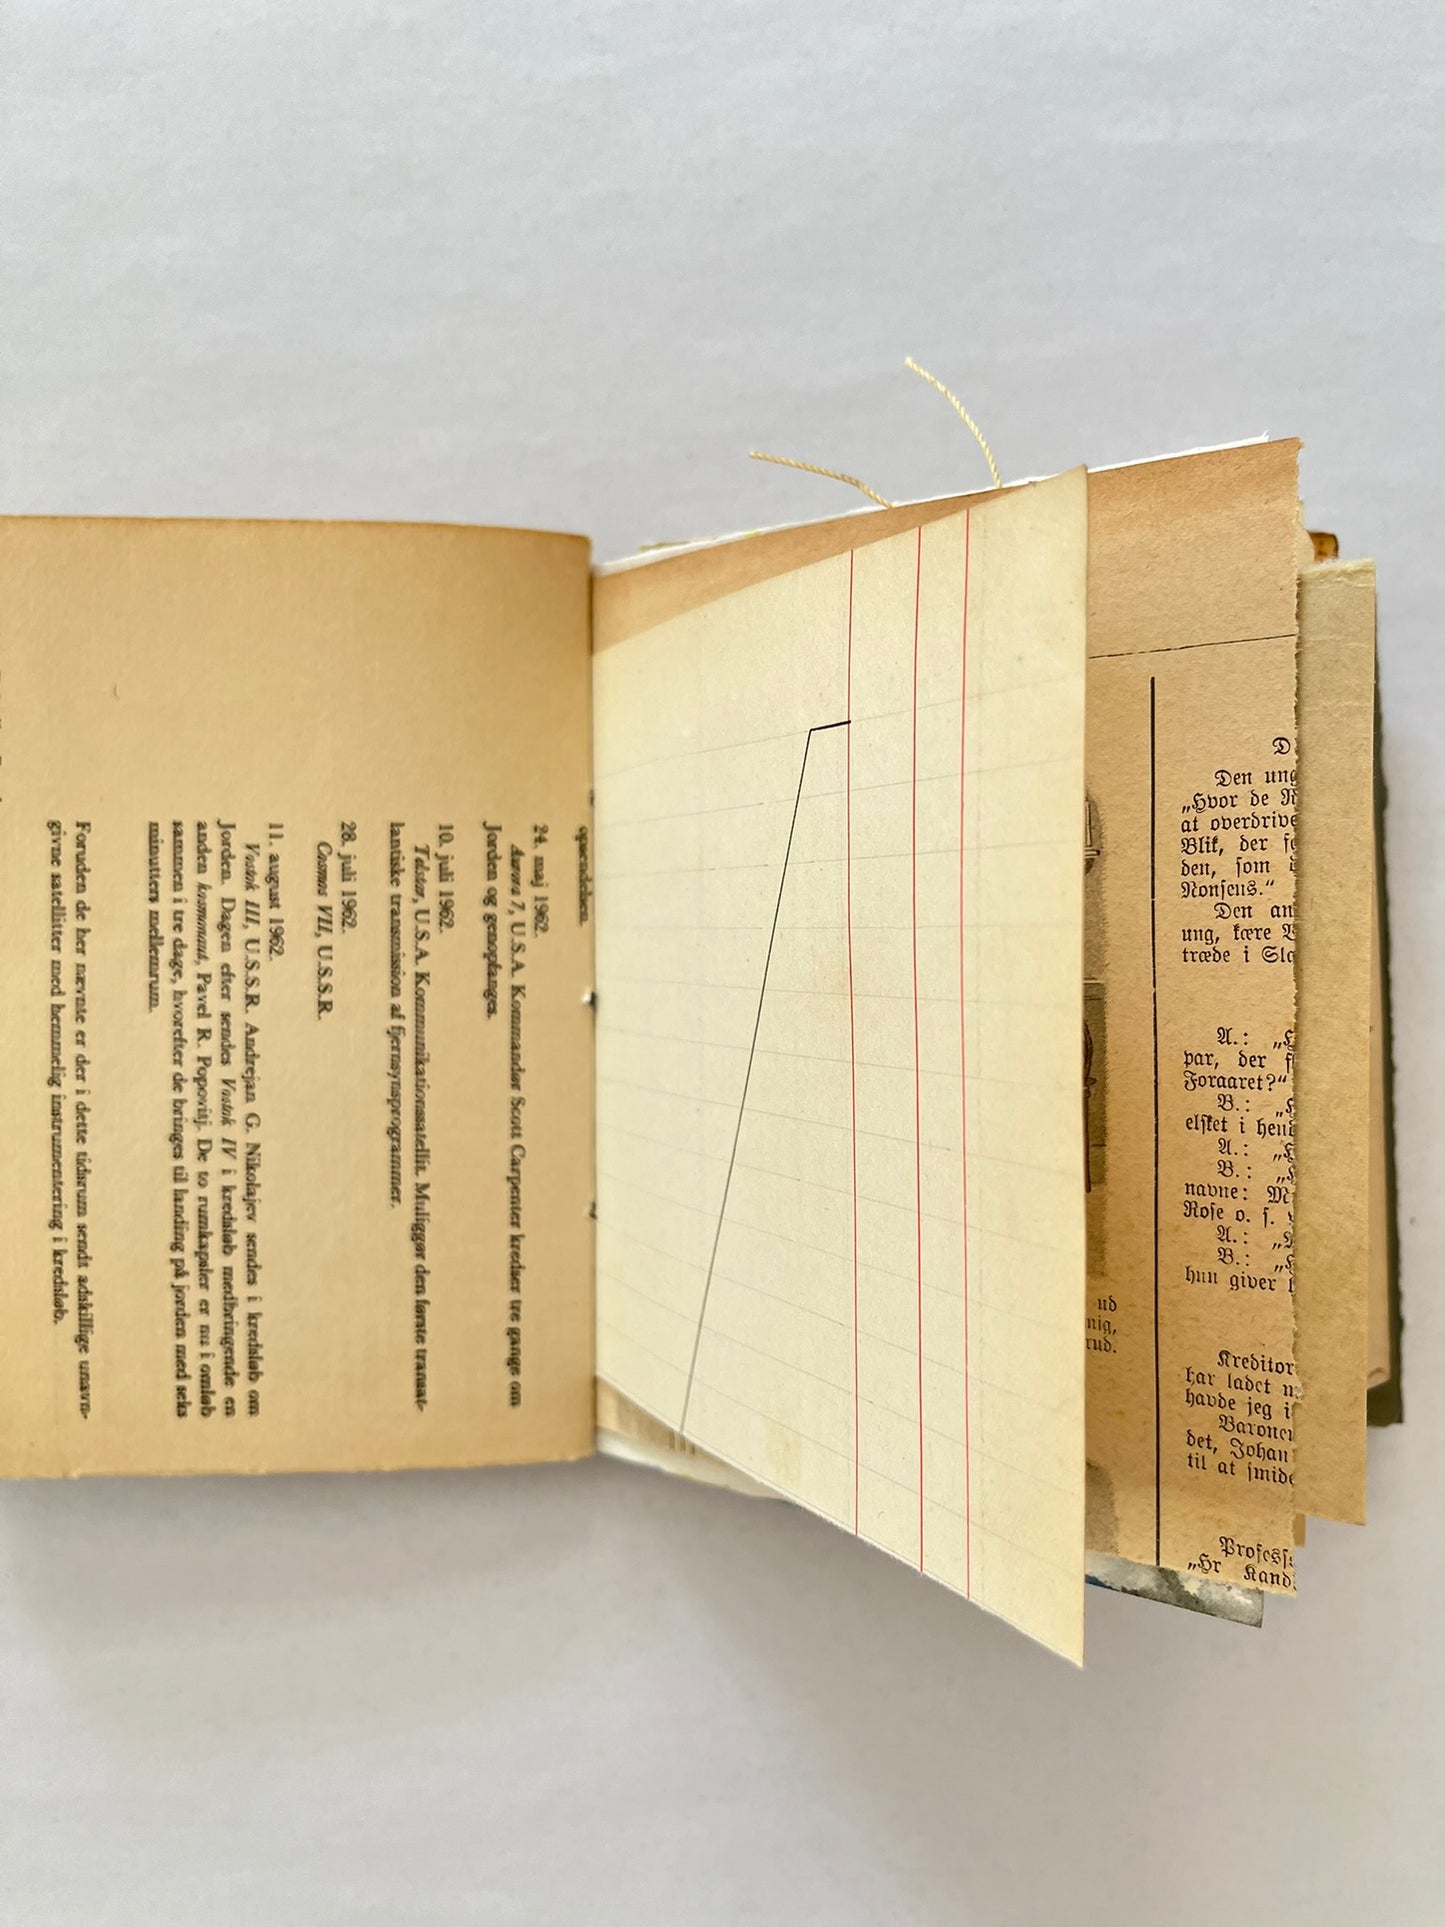 opsendelsen.
24. maj 1962.
Aurora 7, U.S.A. Kommandør Scott Carpenter kredser tre gange om
Jorden og genopfanges.
10. juli 1962.
Telstar, U.S.A. Kommunikationssatellit. Muliggør den første transat-
lantiske transmission af fjernsynsprogrammer.
28. juli 1962.
Cosmos VII, U.S.S.R.
11. august 1962.
Vostok III, U.S.S.R. Andrejan G. Nikolajev sendes i kredsløb om
Jorden. Dagen efter sendes Vostok IV i kredsløb medbringende en
anden kosmonaut, Pavel R. Popovitj. De to rumkapsler er nu i omløb
sammen i tre dage, hvorefter de bringes til landing på jorden med seks
minutters mellemrum.
Foruden de her nævnte er der i dette tidsrum sendt adskillige unavn-
givne satellitter med hemmelig instrumentering i kredsløb.
ud
nig,
rud.
D
Den ung
„Hvor de N
at overdrive
Blik, der se
den, som
Nonsens.“
Den an
ung, kære V
træde i Slo
A.: „H
par, der f
Foraaret?“
B.: „H
elsket i hend
A.: „H
B.: „H
navne: M
Rose o. s. v
A.: „N
B.: „H
hun giver h
Kreditor
har ladet m
havde jeg i
Baronen
det, Johan
til at smide
Profess
„Hr Kand